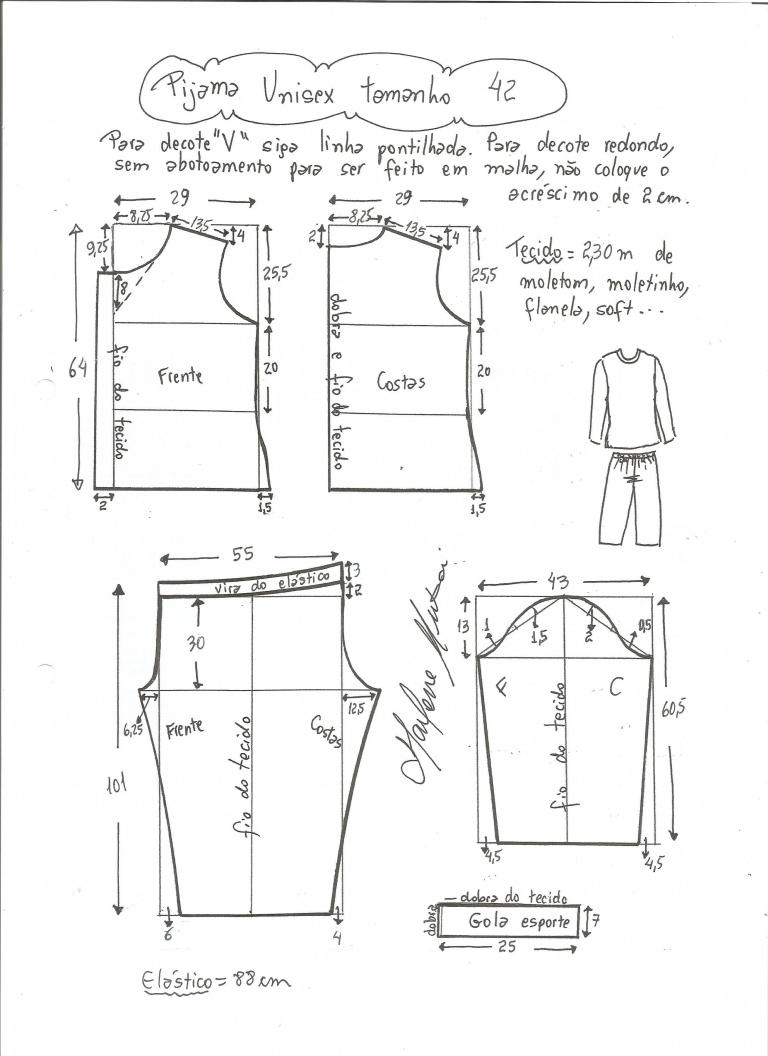 Pijama Unisex tamanho 42
Para decote "V" siga linha pontilhada. Para decote redondo,
sem abotoamento para ser feito em malha, não coloque o
acréscimo de 2 cm.
29
8,25
13,5
4
9,25
8
25,5
64
20
fio do tecido
Frente
2
1,5
29
8,25
13,5
4
2
25,5
20
dobra e fio do tecido
Costas
1,5
Tecido = 2,30 m de
moletom, moletinho,
flanela, soft...
55
3
vira do elástico
2
30
6,25
12,5
Frente
Costas
fio do tecido
101
6
4
Elástico = 88 cm
Marlene Mukai
43
13
1
1,5
2
0,5
F
C
fio do tecido
60,5
4,5
4,5
dobra do tecido
dobra
Gola esporte
7
25